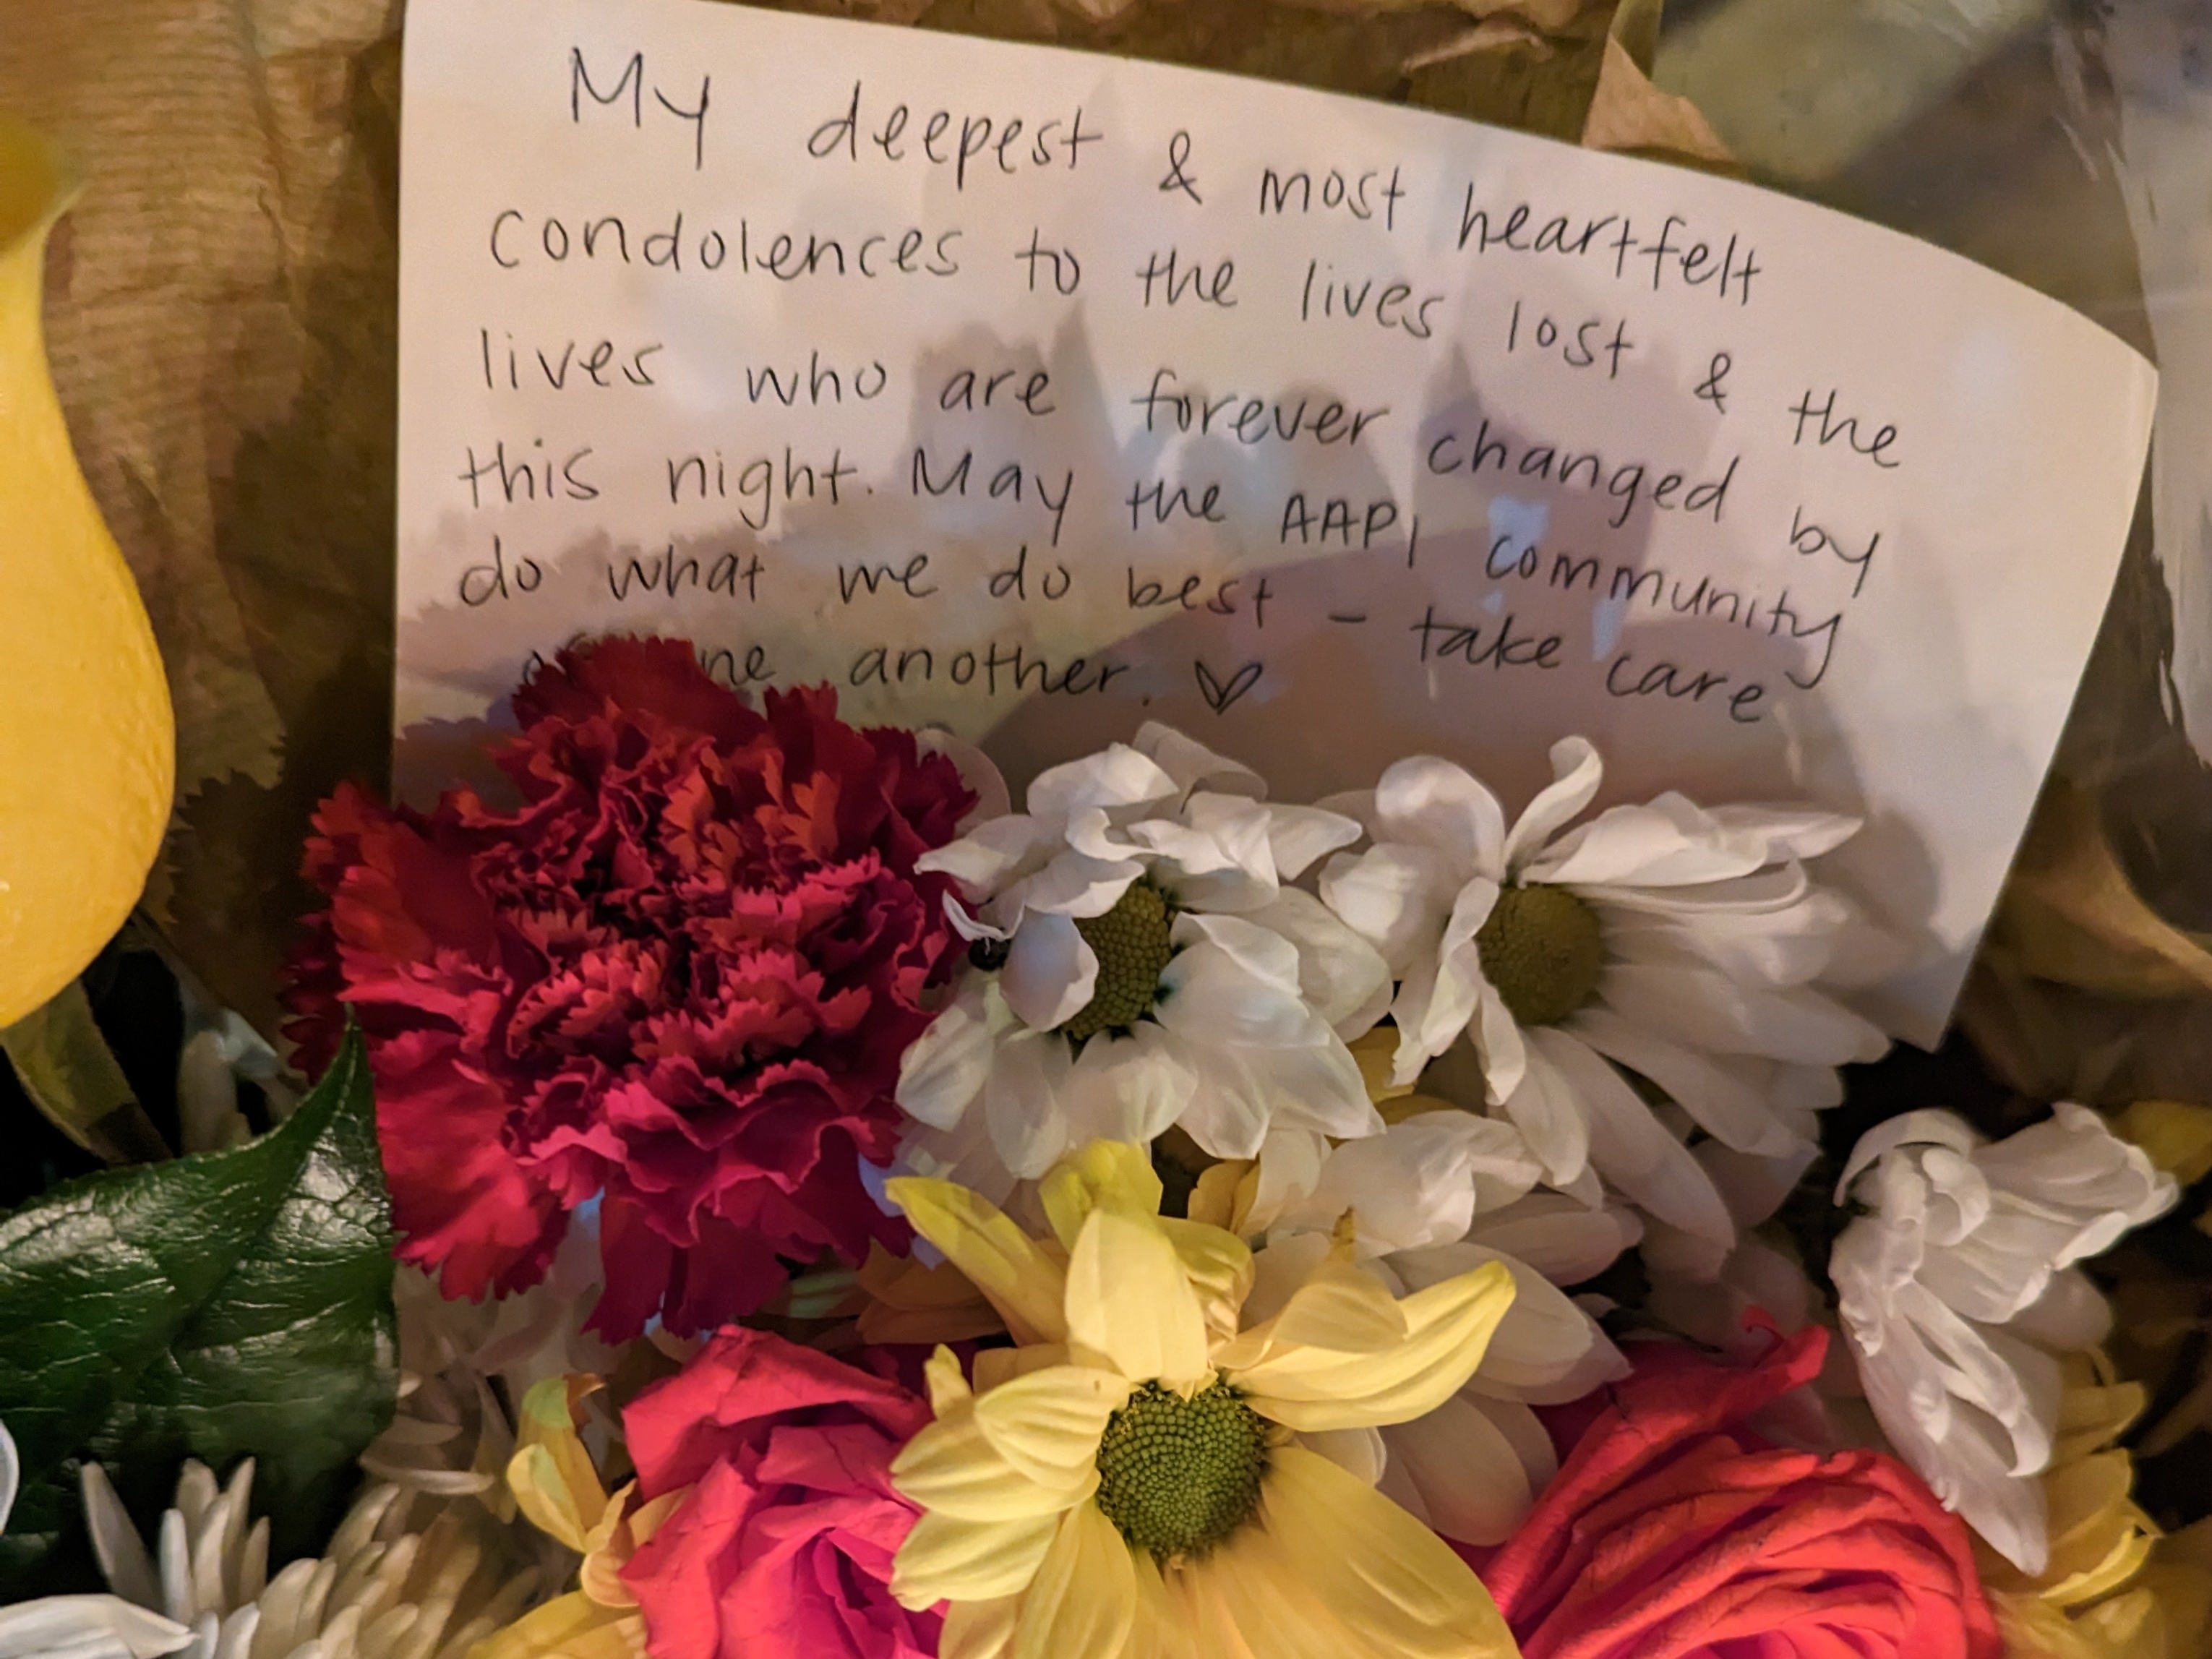 My deepest & most heartfelt
condolences to the lives lost & the
lives who are forever changed by
this night. May the AAPI community
do what we do best - take care
another. ♡